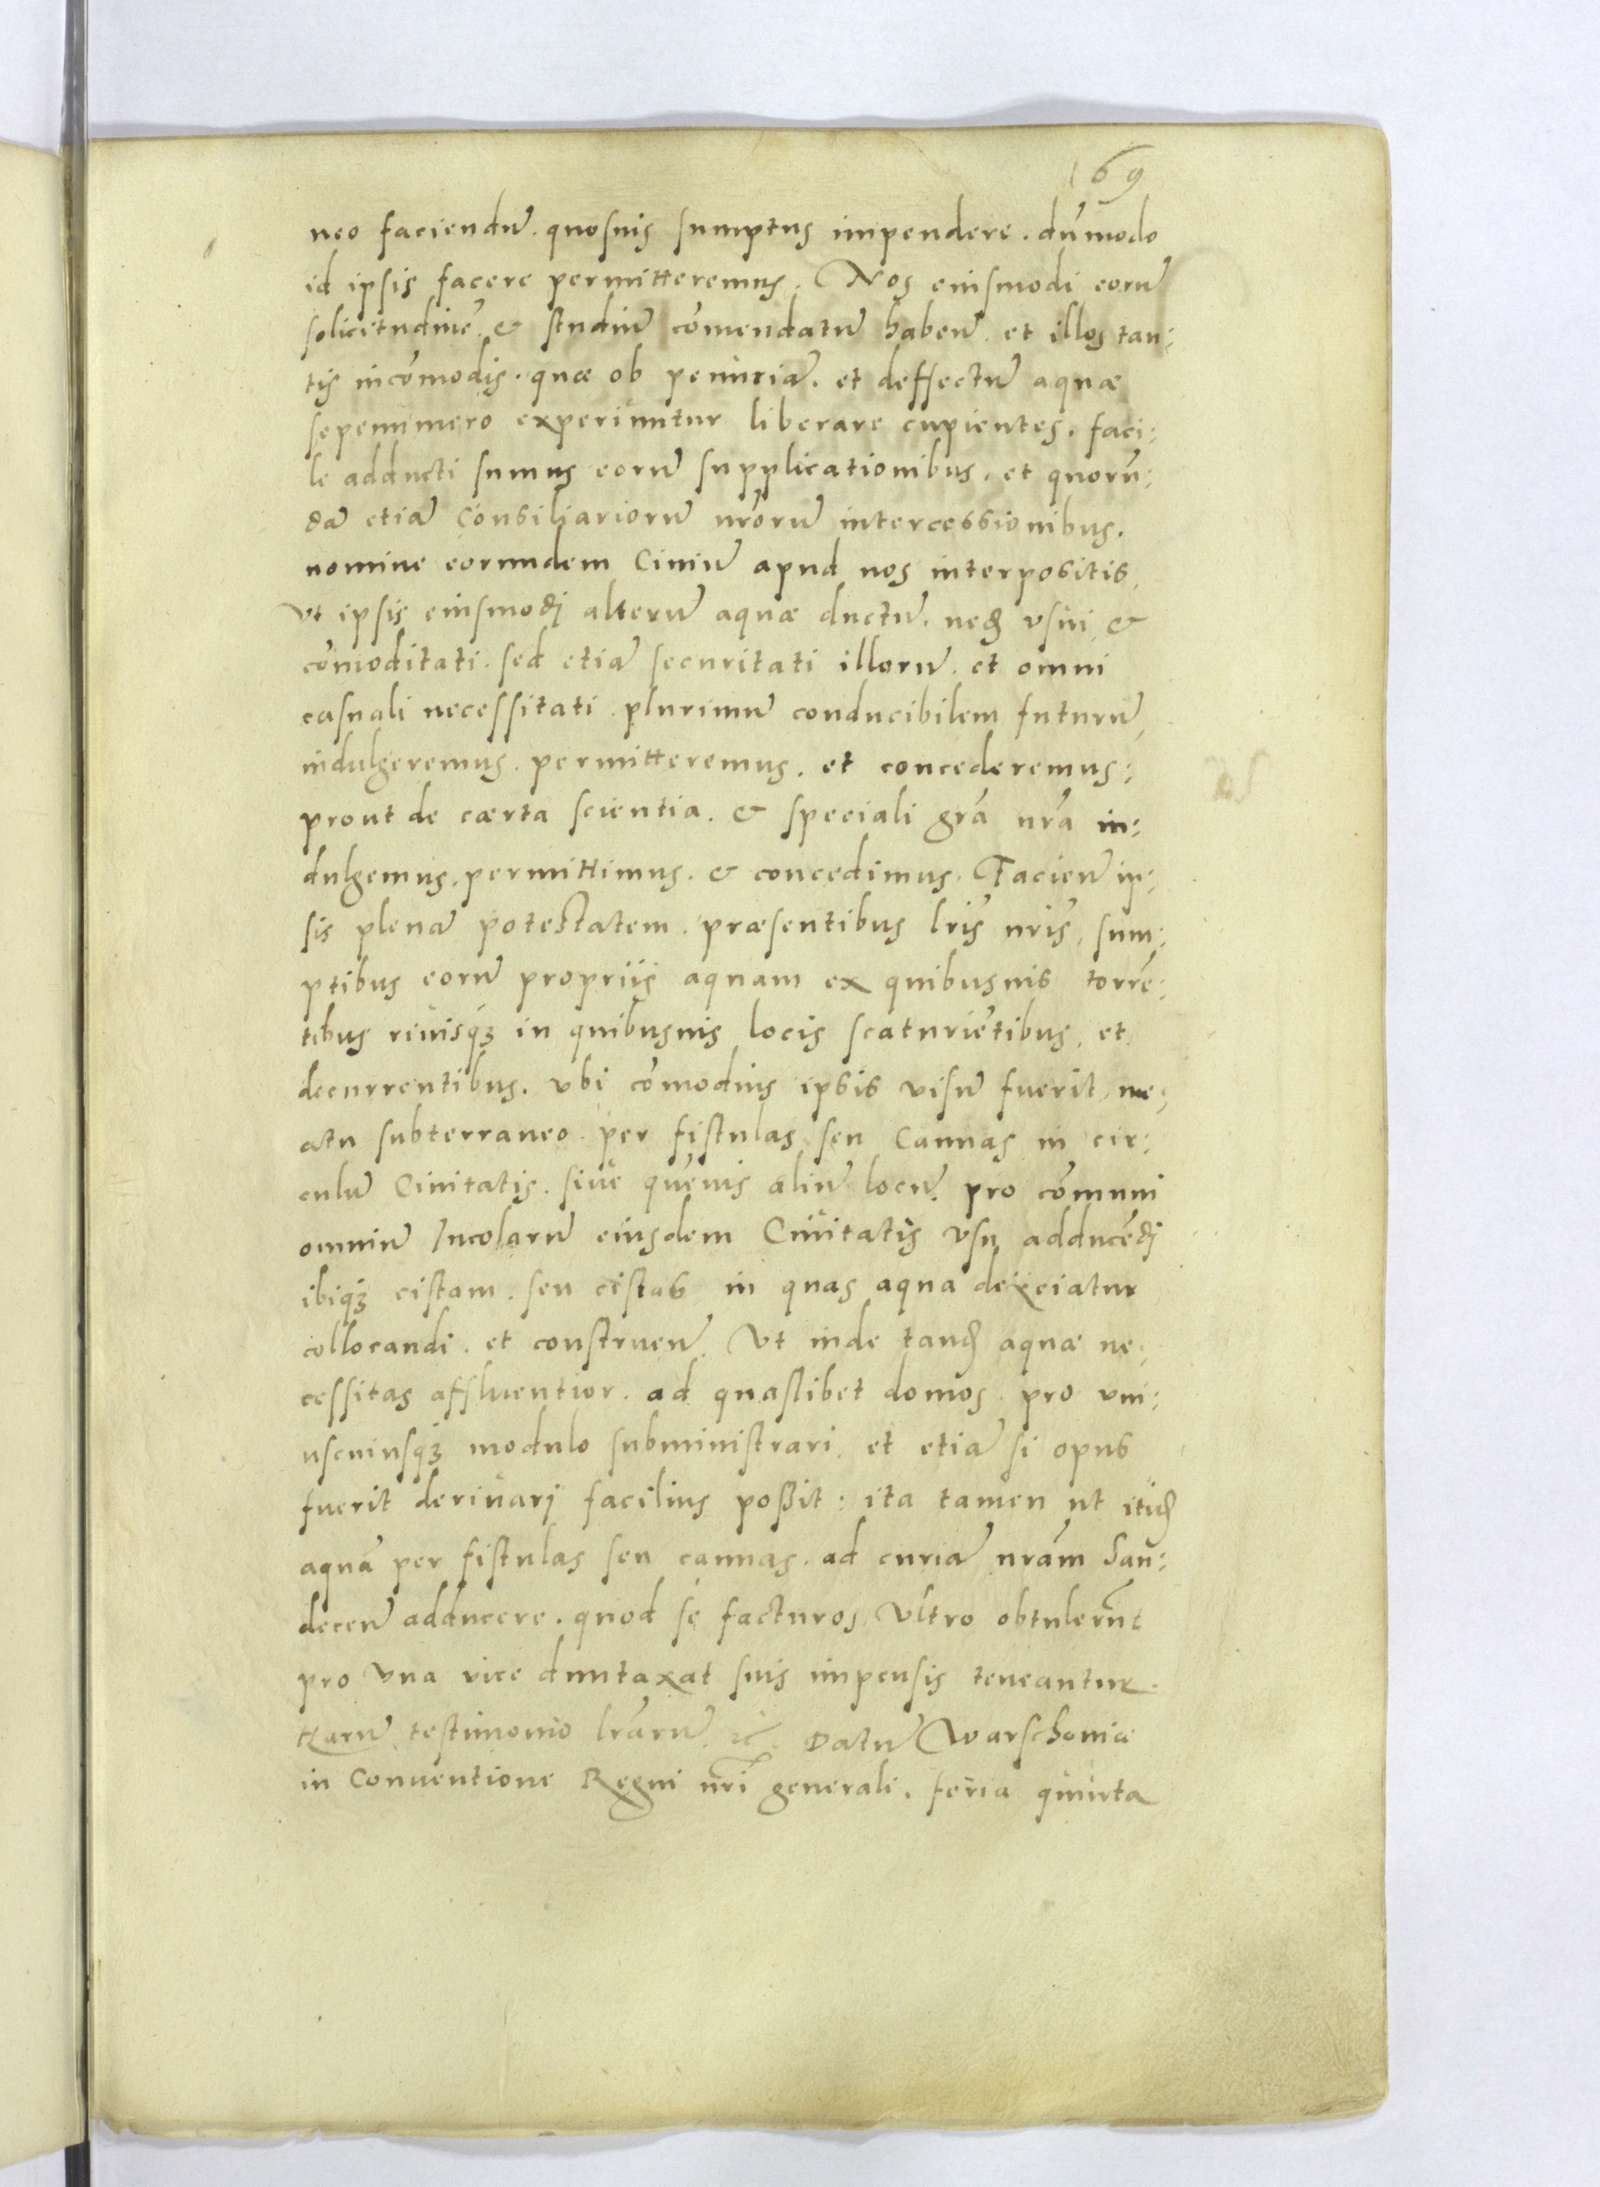 69
neo faciendū. quosuis sumptus impendere. dūmodo
id ipsis facere permitteremus. Nos eiusmodi eorū
solicitudinē & studiū cōmendatū habeñ. et illos tan:
tis incōmodis. quæ ob penuriā. et deffectū aquæ
sepenumero experiuntur liberare cupientes. faci:
le adducti sumus eorū supplicationibus. et quorū:
dā etiā Consiliariorū nrōrū intercessionibus.
nomine eorundem Ciuiū apud nos interpositis,
vt ipsis eiusmodj alterū aquæ ductū. neqȝ vsui &
cōmoditati. sed etiā securitati illorū. et omni
casuali necessitati plurimū conducibilem futurū,
indulgeremus. permitteremus. et concederemus:
prout de cærta scientia. & speciali grā nrā in:
dulgemus. permittimus. & concedimus. Facieñ ip:
sis plenā potestatem. præsentibus lrīs nrīs, sum:
ptibus eorū propriis aquam ex quibusuis torrē:
tibus riuisqȝ in quibusuis locis scaturiētibus, et
decurrentibus. vbi cōmodius ipsis visū fuerit, me:
atu subterraneo per fistulas seu Cannas in cir:
culū Ciuitatis. siue quēuis aliū locū. pro cōmuni
omniū Incolarū eiusdem Ciuitatis vsu adducēdj
ibiqȝ cistam. seu cistas in quas aqua deijciatur
collocandi. et construeñ. Vt inde tandē aquæ ne:
cessitas affluentior. ad quaslibet domos. pro vni:
uscuiusqȝ modulo subministrari. et etiā si opus
fuerit deriuarj facilius poßit: ita tamen ut itidē
aquā per fistulas seu cannas. ad curiā nrām San:
deceñ adducere. quod se facturos vltro obtulerūt
pro vna vice duntaxat suis impensis teneantur.
Harū testimonio lrārū &c. Datū Warschouiæ
in Conuentione Regni nrī generali. feria quinta